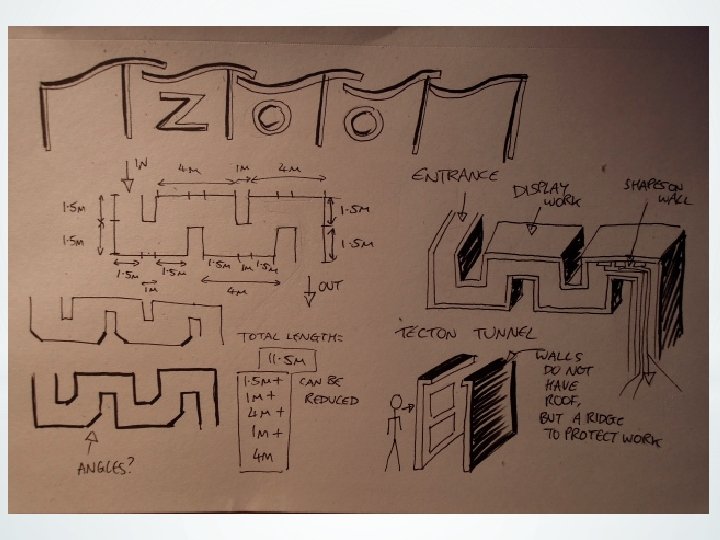 ZOO
IN
4M 1M 4M
1.5M
1.5M
1.5M
1.5M
1.5M 1.5M 1.5M 1M 1.5M
1M
4M
OUT
ENTRANCE
DISPLAY
WORK
SHAPES ON
WALL
TOTAL LENGTH:
11.5M
1.5M +
1M +
4M +
1M +
4M
CAN BE
REDUCED
ANGLES?
TECTON TUNNEL
WALLS
DO NOT
HAVE
ROOF,
BUT A RIDGE
TO PROTECT WORK